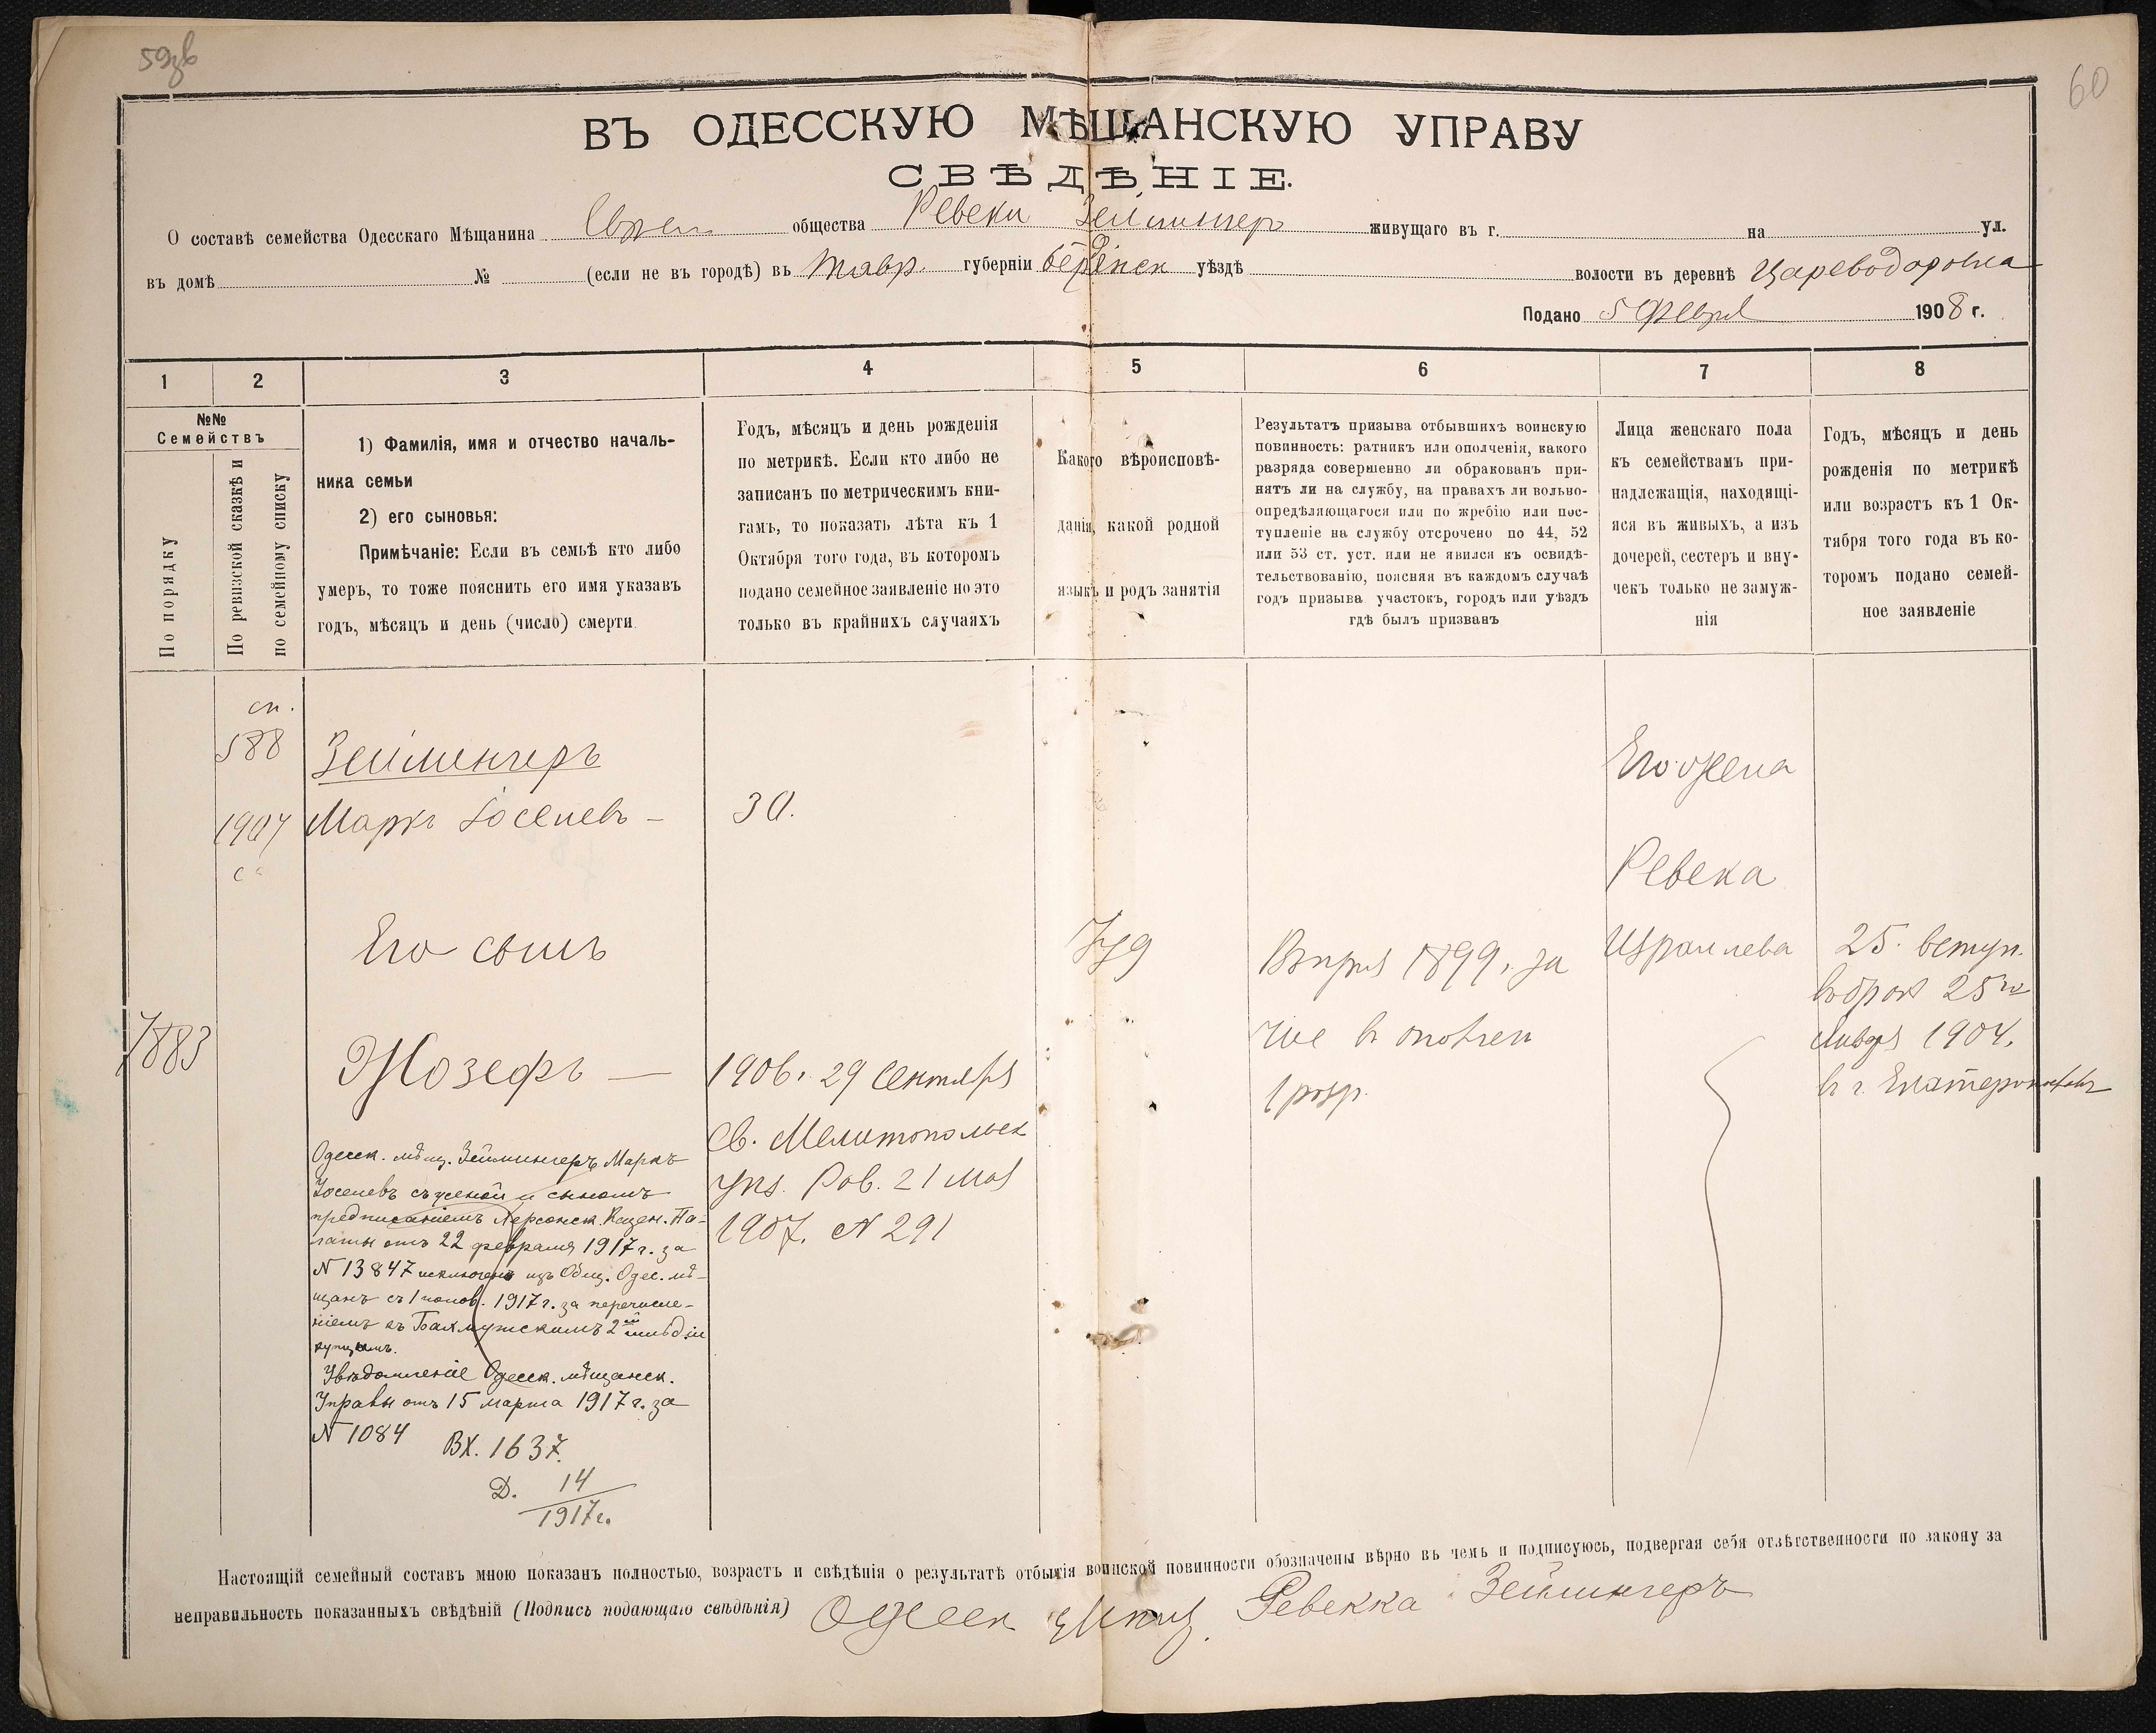 59 об
60
ВЪ ОДЕССКУЮ МѢЩАНСКУЮ УПРАВУ
СВѢДѢНІЕ.
О составѣ семейства Одесскаго Мѣщанина Еврей общества Ревеки Зейлингеръ живущаго въ г. на ул.
въ домѣ № (если не въ городѣ) въ Тавр. губерніи уѣздѣ волости въ деревнѣ
Подано 5 Февр 1908 г.
1 2 3 4 5 6 7 8
№№
Семействъ
По порядку
По ревизской сказкѣ и
по семейному списку
1) Фамилія, имя и отчество началь-
ника семьи
2) его сыновья:
Примѣчаніе: Если въ семьѣ кто либо
умеръ, то тоже пояснить его имя указавъ
годъ, мѣсяцъ и день (число) смерти
Годъ, мѣсяцъ и день рожденія
по метрикѣ. Если кто либо не
записанъ по метрическимъ кни-
гамъ, то показать лѣта къ 1
Октября того года, въ которомъ
подано семейное заявленіе но это
только въ крайнихъ случаяхъ
Какого вѣроисповѣ-
данія, какой родной
языкъ и родъ занятія
Результатъ призыва отбывшихъ воинскую
повинность: ратникъ или ополченія, какого
разряда совершенно ли обракованъ при-
нятъ ли на службу, на правахъ ли вольно-
опредѣляющагося или по жребію или пос-
тупленіе на службу отсрочено по 44, 52
или 53 ст. уст. или не явился къ освидѣ-
тельствованію, поясняя въ каждомъ случаѣ
годъ призыва участокъ, городъ или уѣздъ
гдѣ былъ призванъ
Лица женскаго пола
къ семействамъ при-
надлежащія, находящі-
яся въ живыхъ, а изъ
дочерей, сестеръ и вну-
чекъ только не замуж-
нія
Годъ, мѣсяцъ и день
рожденія по метрикѣ
или возрастъ къ 1 Ок-
тября того года въ ко-
торомъ подано семей-
ное заявленіе
сп.
588
1907
7883
Зейлингеръ
Маркъ Іоселевъ —
Его сынъ
Жозефъ —
Одесск. мѣщ. Зейлингеръ Маркъ
Іоселевъ съ женой и сыномъ
предписаніемъ Херсонск. Казен. Па-
латы отъ 22 февраля 1917 г. за
№ 13847 исключенъ изъ Общ. Одес. мѣ-
щанъ съ 1 полов. 1917 г. за перечисле-
ніемъ къ Бахмутскимъ 2ой гильдіи
купцамъ.
Увѣдомленіе Одесск. мѣщанск.
Управы отъ 15 марта 1917 г. за
№ 1084
ВХ. 1637.
Д. 14
1917 г.
30.
1906 г. 29 Сентября
Св. Мелитопольск
Рав. 21 Мая
1907. № 291
Іуд
1899 г. за
1 разр.
Его жена
Ревека
Израилева
25. вступ.
въ бракъ 25го
Января 1904.
въ г. Екатеринославѣ
Настоящій семейный составъ мною показанъ полностью, возрастъ и свѣдѣнія о результатѣ отбытія воинской повинности обозначены вѣрно въ чемъ и подписуюсь, подвергая себя отвѣтственности по закону за
неправильность показанныхъ свѣдѣній (Подпись подающаго свѣдѣнія) Ревекка Зейлингеръ